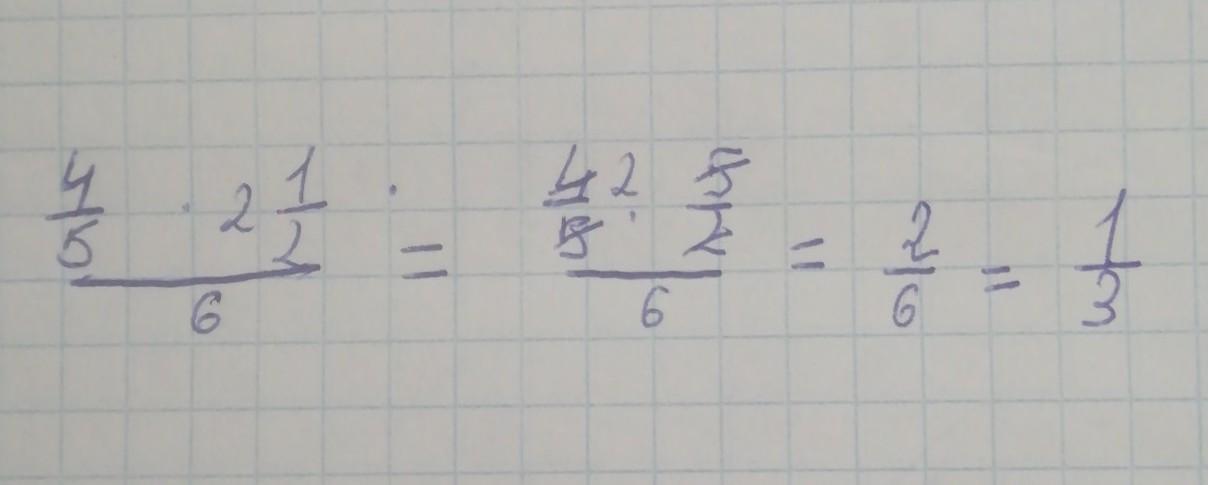 4/5 · 2 1/2 / 6 = 4 2/5 · 5/2 / 6 = 2/6 = 1/3